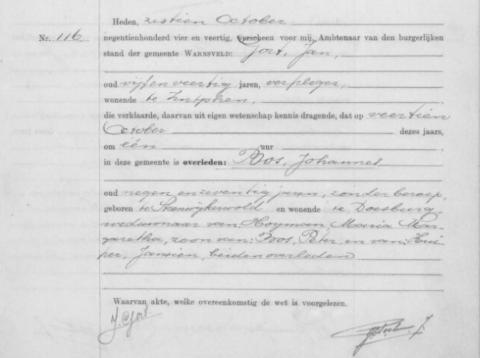 Heden, zestien October
Nr. 116
negentienhonderd vier en veertig, verscheen voor mij, Ambtenaar van den burgerlijken
stand der gemeente WARNSVELD: Jort, Jan,
oud vijf en veertig jaren, verpleger,
wonende te Zutphen,
die verklaarde, daarvan uit eigen wetenschap kennis dragende, dat op veertien
October dezes jaars,
om één uur
in deze gemeente is overleden: Bos, Johannes
oud negen en zeventig jaren, zonder beroep,
geboren te Steenwijkerwold en wonende te Doesburg
weduwnaar van Hoyman Maria Mar-
garetha, zoon van: Bos, Peter en van: Kui
per, Jansien, beiden overleden
Waarvan akte, welke overeenkomstig de wet is voorgelezen.
J. Jort